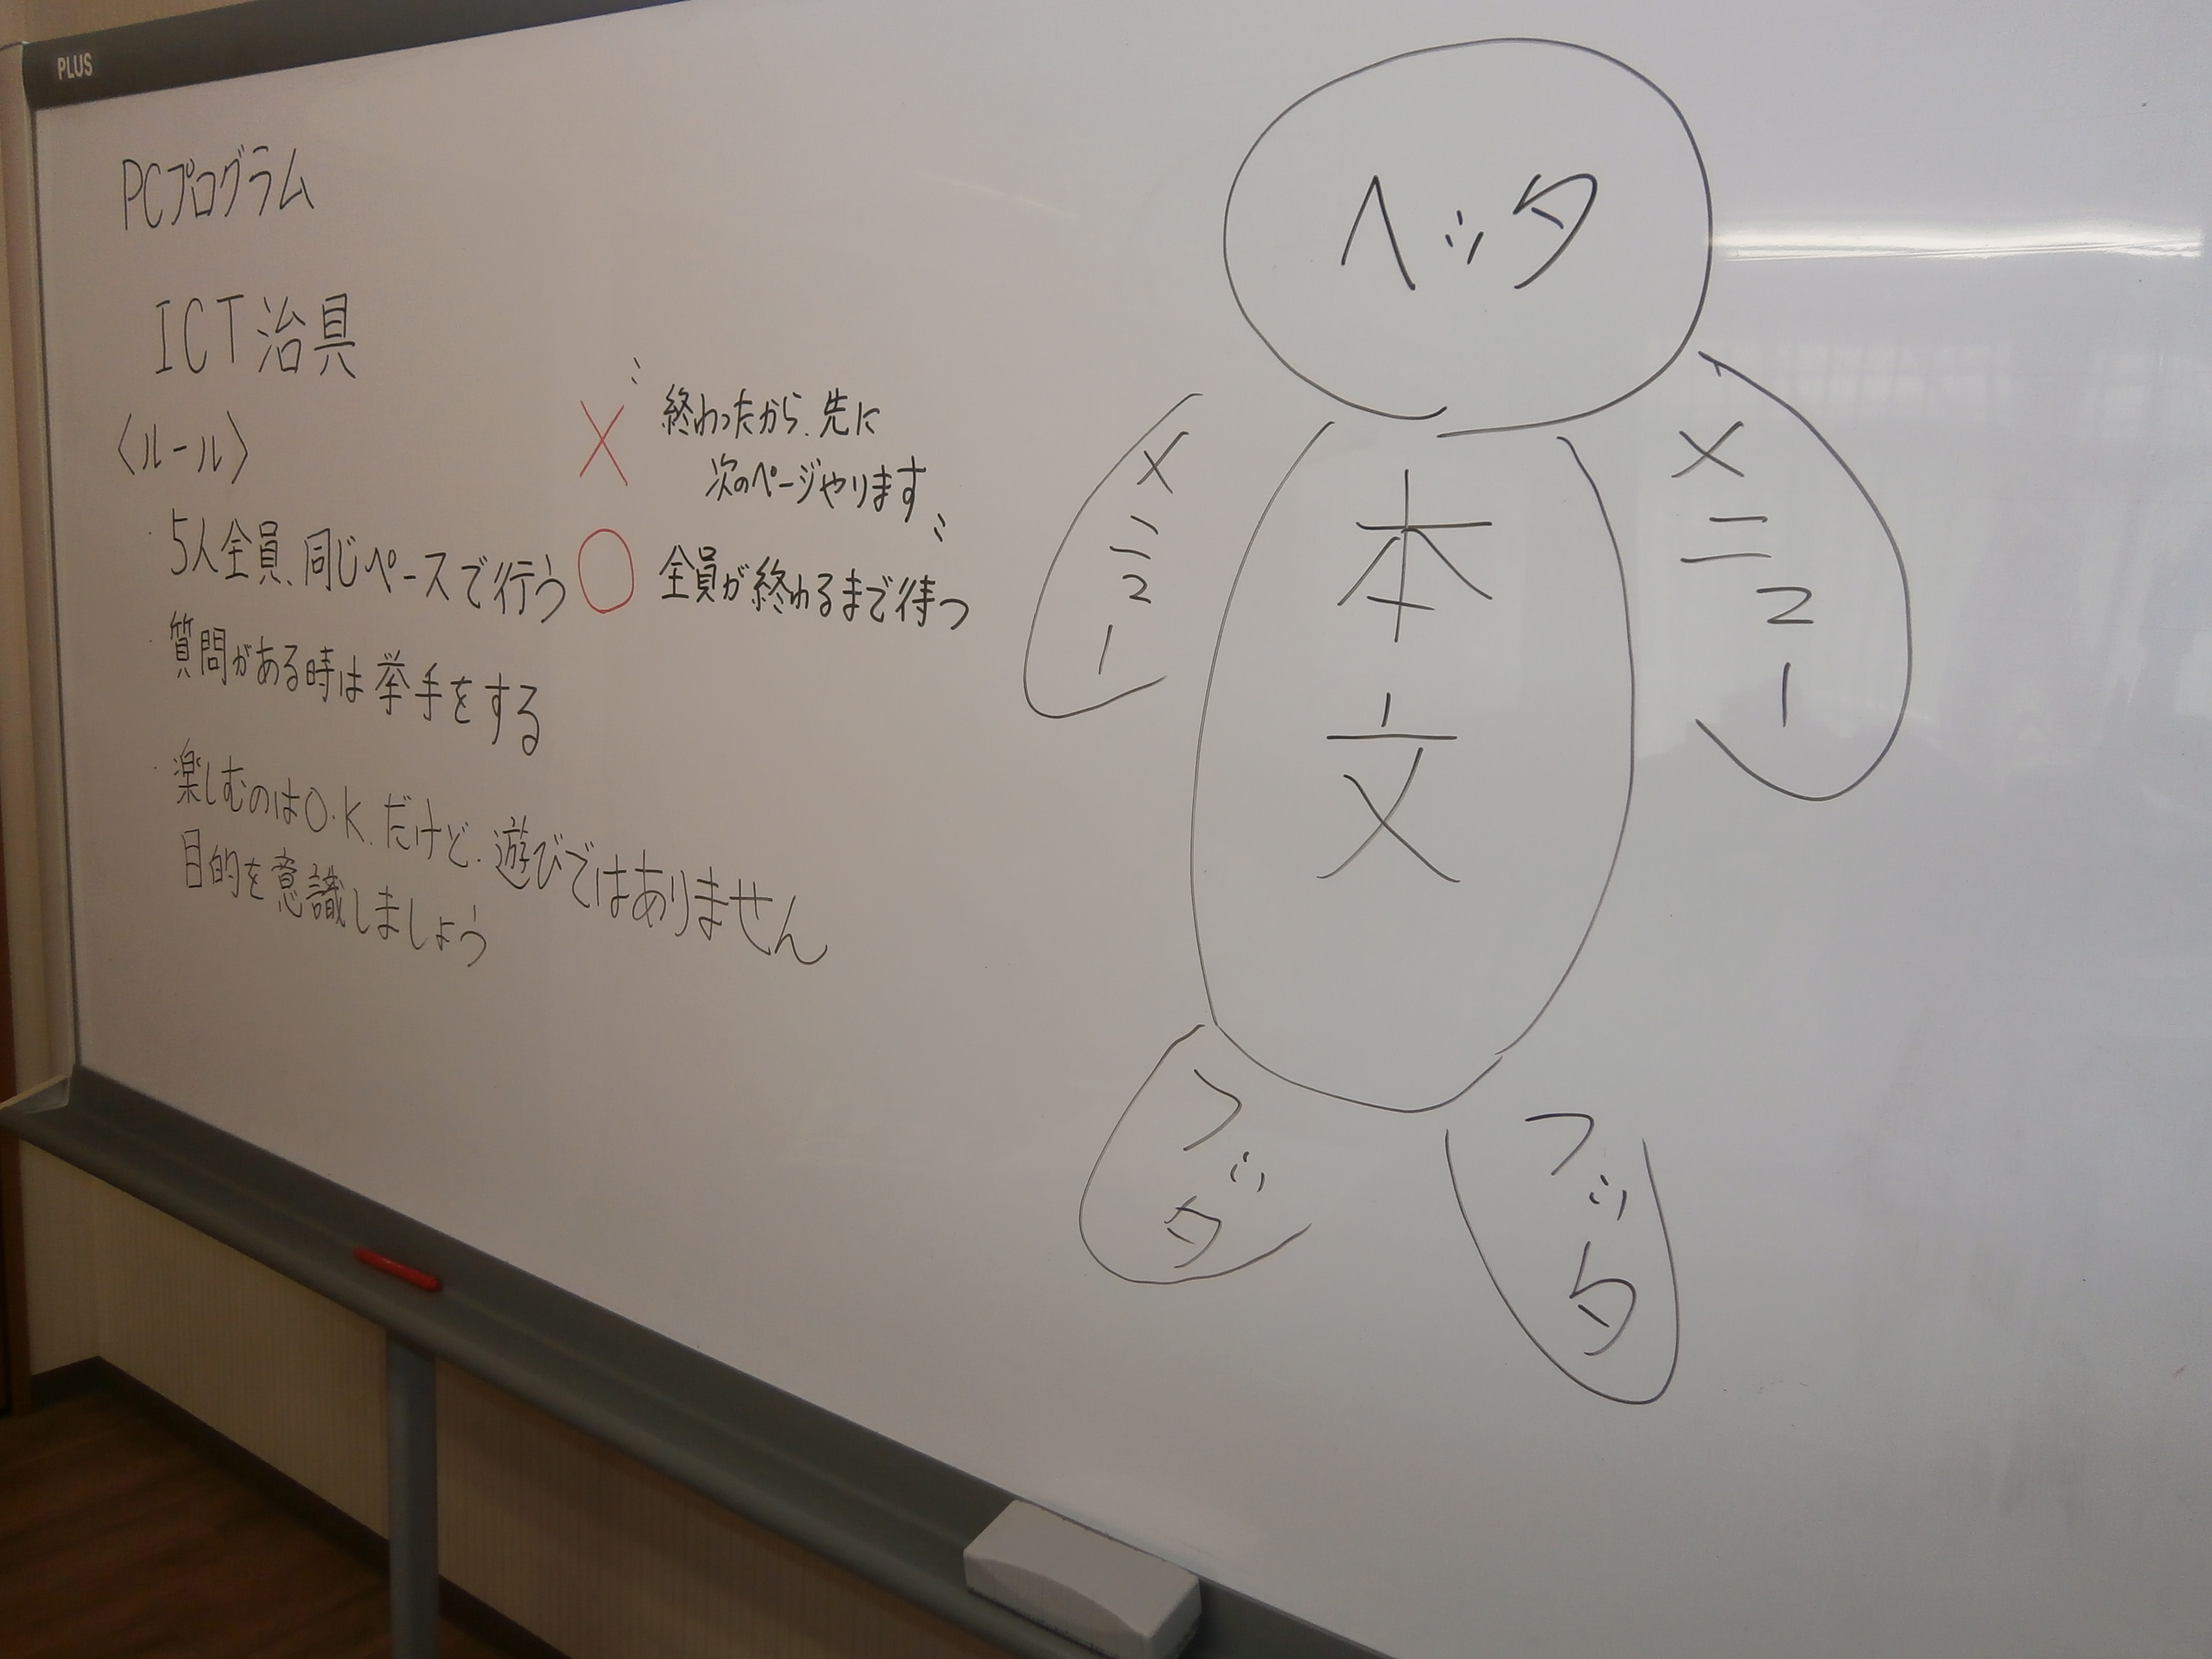 PLUS
PCプログラム
ICT治具
〈ルール〉
・5人全員、同じペースで行う
・質問がある時は挙手をする
・楽しむのはO.K.だけど、遊びではありません
目的を意識しましょう
× 〝終わったから、先に
次のページやります〟
○ 全員が終わるまで待つ
ヘッタ
メニュー
本文
メニュー
フッタ
フッタ